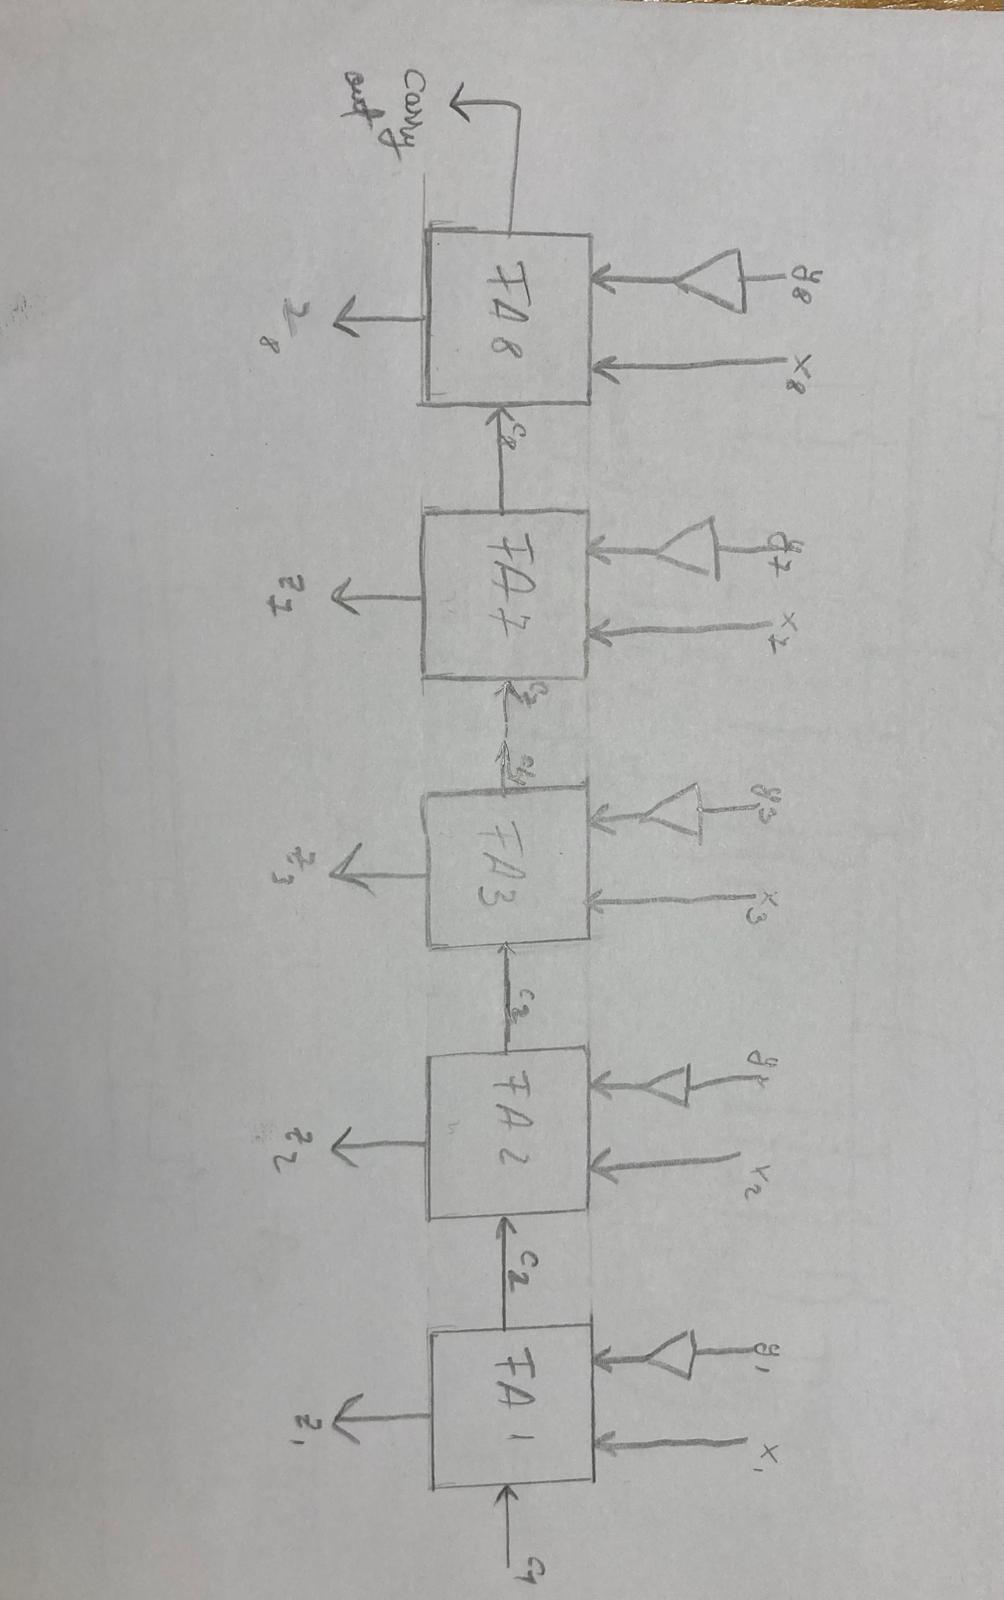 y8 x8 y7 x7 y3 x3 y2 x2 y1 x1
FA8 c8 FA7 c7 c4 FA3 c3 FA2 c2 FA1 c1
Carry
out
z8 z7 z3 z2 z1